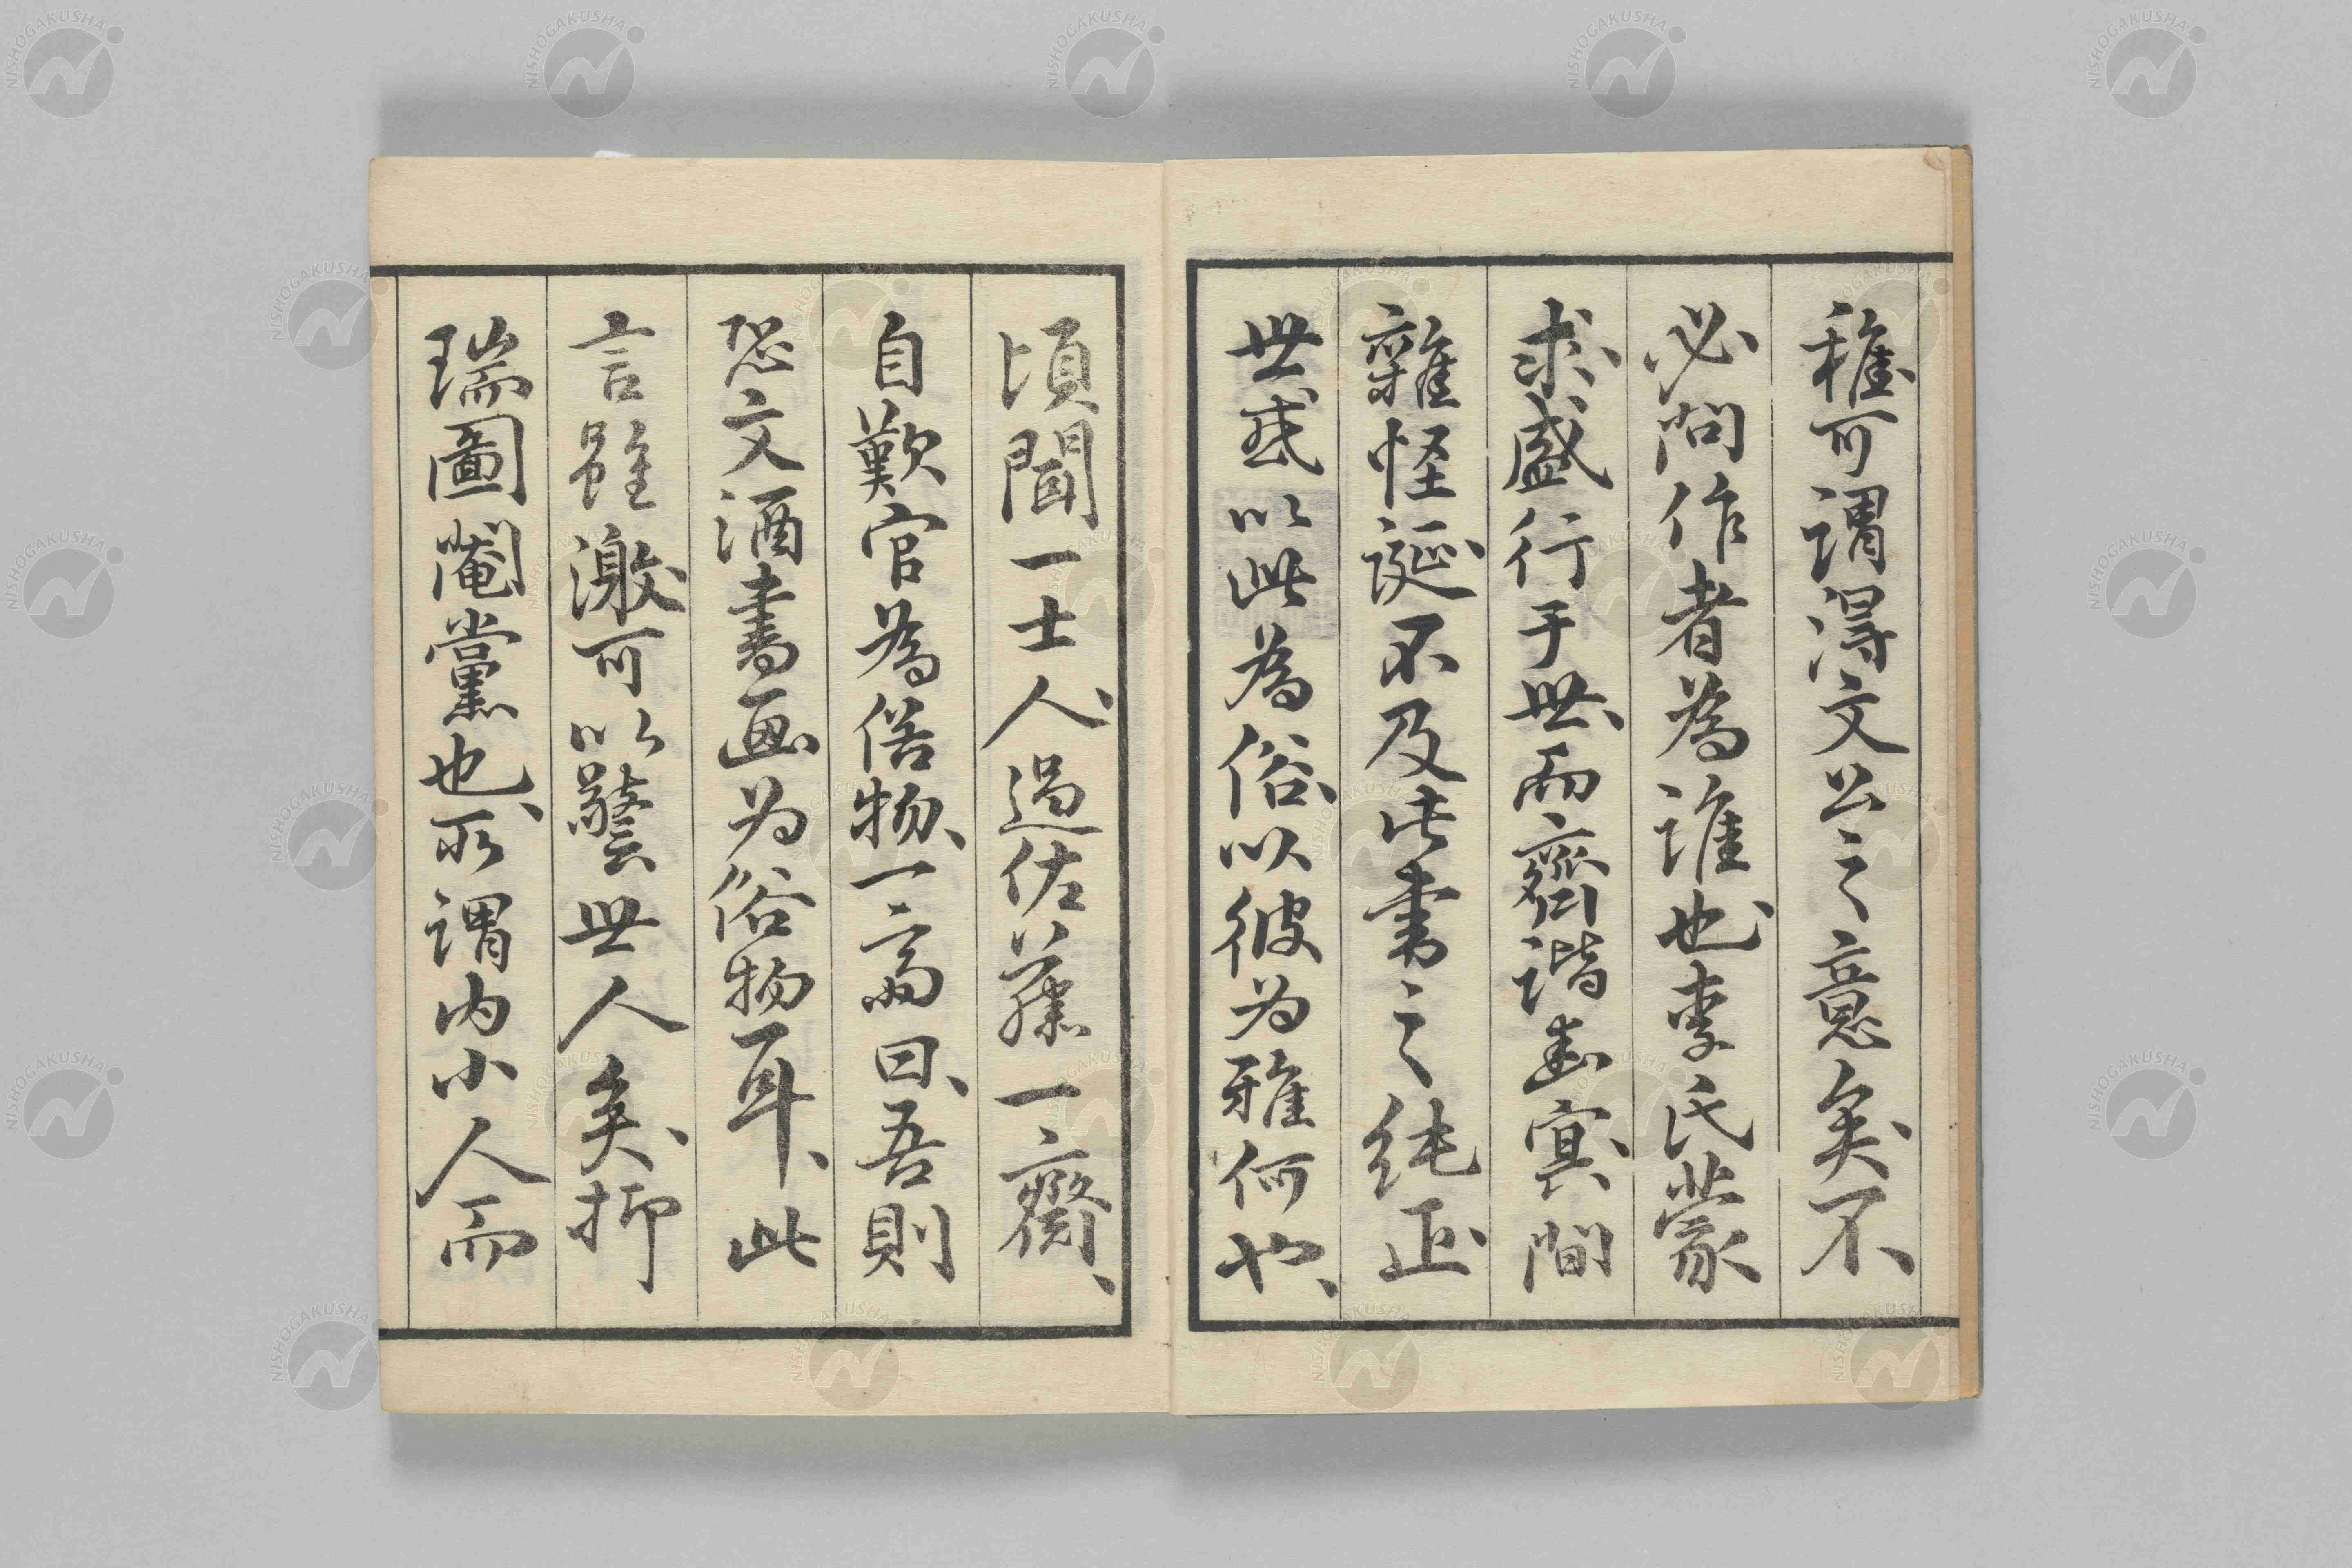 稚可謂得文公之意矣、不、
必問作者為誰也、李氏蒙
求、盛行于世、而齊諧志冥、間
雜怪誕、不及此書之純正、
世、或以此為俗、以彼為雅何也、
頃聞一士人、過佐藤一齋、
自歎官為俗物、一齋曰、吾則
恐文酒書画为俗物耳、此
言雖激、可以警世人矣、抑
瑞圖閹黨也、所謂内小人而
NISHOGAKUSHA